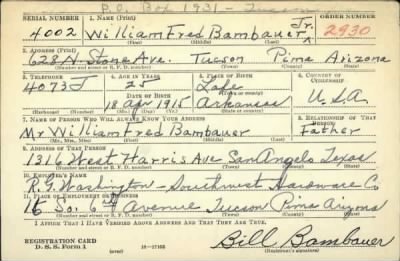 P.O. Box 1931 - Tucson
SERIAL NUMBER 1. NAME (Print) ORDER NUMBER
4002 William Fred Bambauer Jr. 2930
(First) (Middle) (Last)
2. ADDRESS (Print)
628 N. Stone Ave. Tucson Pima Arizona
(Number and street or R. F. D. number) (Town) (County) (State)
3. TELEPHONE 4. AGE IN YEARS 5. PLACE OF BIRTH 6. COUNTRY OF CITIZENSHIP
4073J 25 Lafe
DATE OF BIRTH
18 Apr 1915 Arkansas U.S.A
(Exchange) (Number) (Mo.) (Day) (Yr.) (State or country)
7. NAME OF PERSON WHO WILL ALWAYS KNOW YOUR ADDRESS 8. RELATIONSHIP OF THAT PERSON
Mr William Fred Bambauer Father
(Mr., Mrs., Miss) (First) (Middle) (Last)
9. ADDRESS OF THAT PERSON
1316 West Harris Ave San Angelo Texas
(Number and street or R. F. D. number) (Town) (County) (State)
10. EMPLOYER'S NAME
R.G. Washington - Southwest Hardware Co
11. PLACE OF EMPLOYMENT OR BUSINESS
15 So. 6th Avenue Tucson Pima Arizona
(Number and street or R. F. D. number) (Town) (County) (State)
I AFFIRM THAT I HAVE VERIFIED ABOVE ANSWERS AND THAT THEY ARE TRUE.
REGISTRATION CARD
D. S. S. Form 1 (over) 16-17105 Bill Bambauer
(Registrant's signature)